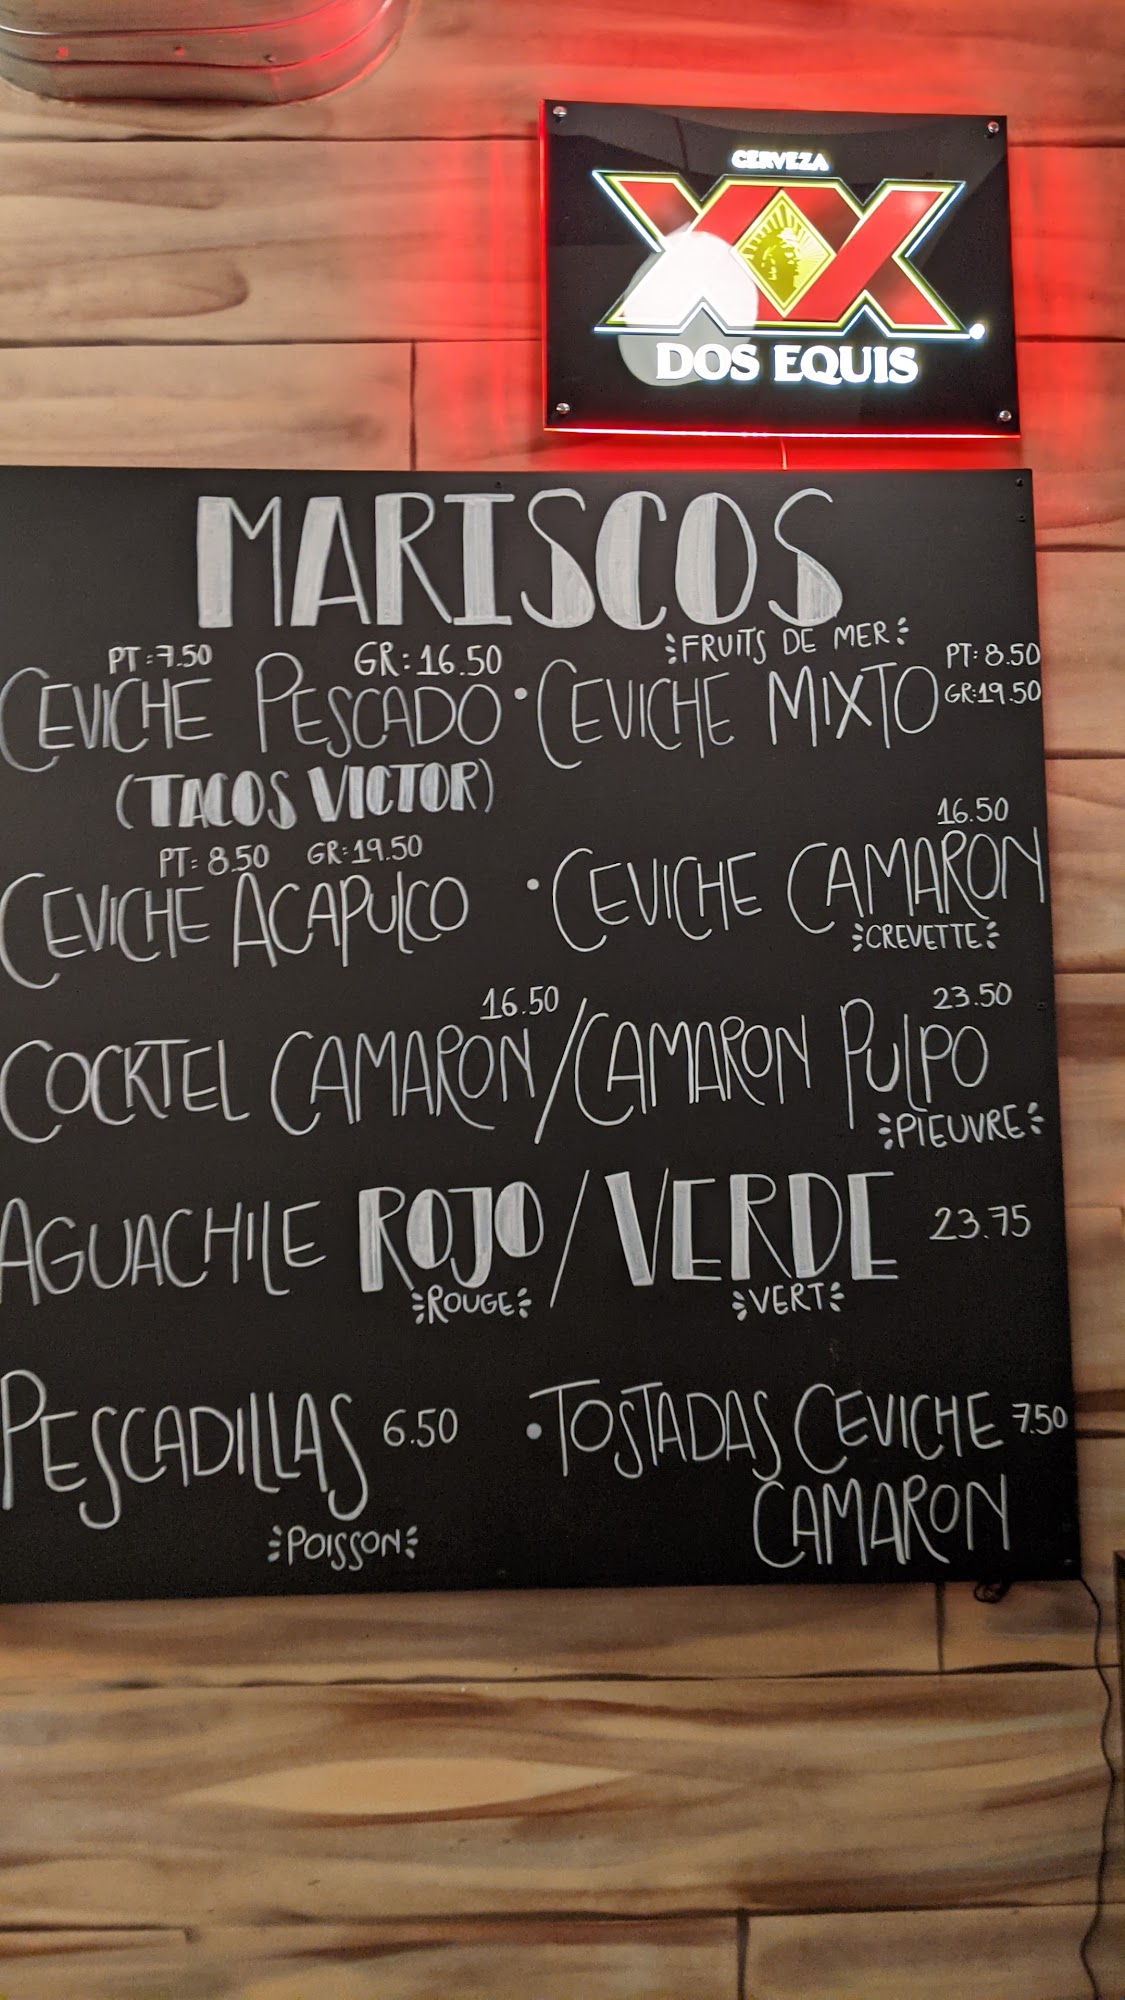 CERVEZA
XX
DOS EQUIS
MARISCOS
FRUITS DE MER
PT: 7.50 GR: 16.50
CEVICHE PESCADO
(TACOS VICTOR)
• CEVICHE MIXTO PT: 8.50
GR: 19.50
PT: 8.50 GR: 19.50
CEVICHE ACAPULCO
16.50
• CEVICHE CAMARON
CREVETTE
16.50 23.50
COCKTEL CAMARON / CAMARON PULPO
PIEUVRE
AGUACHILE ROJO / VERDE 23.75
ROUGE VERT
PESCADILLAS 6.50
POISSON
• TOSTADAS CEVICHE 7.50
CAMARON